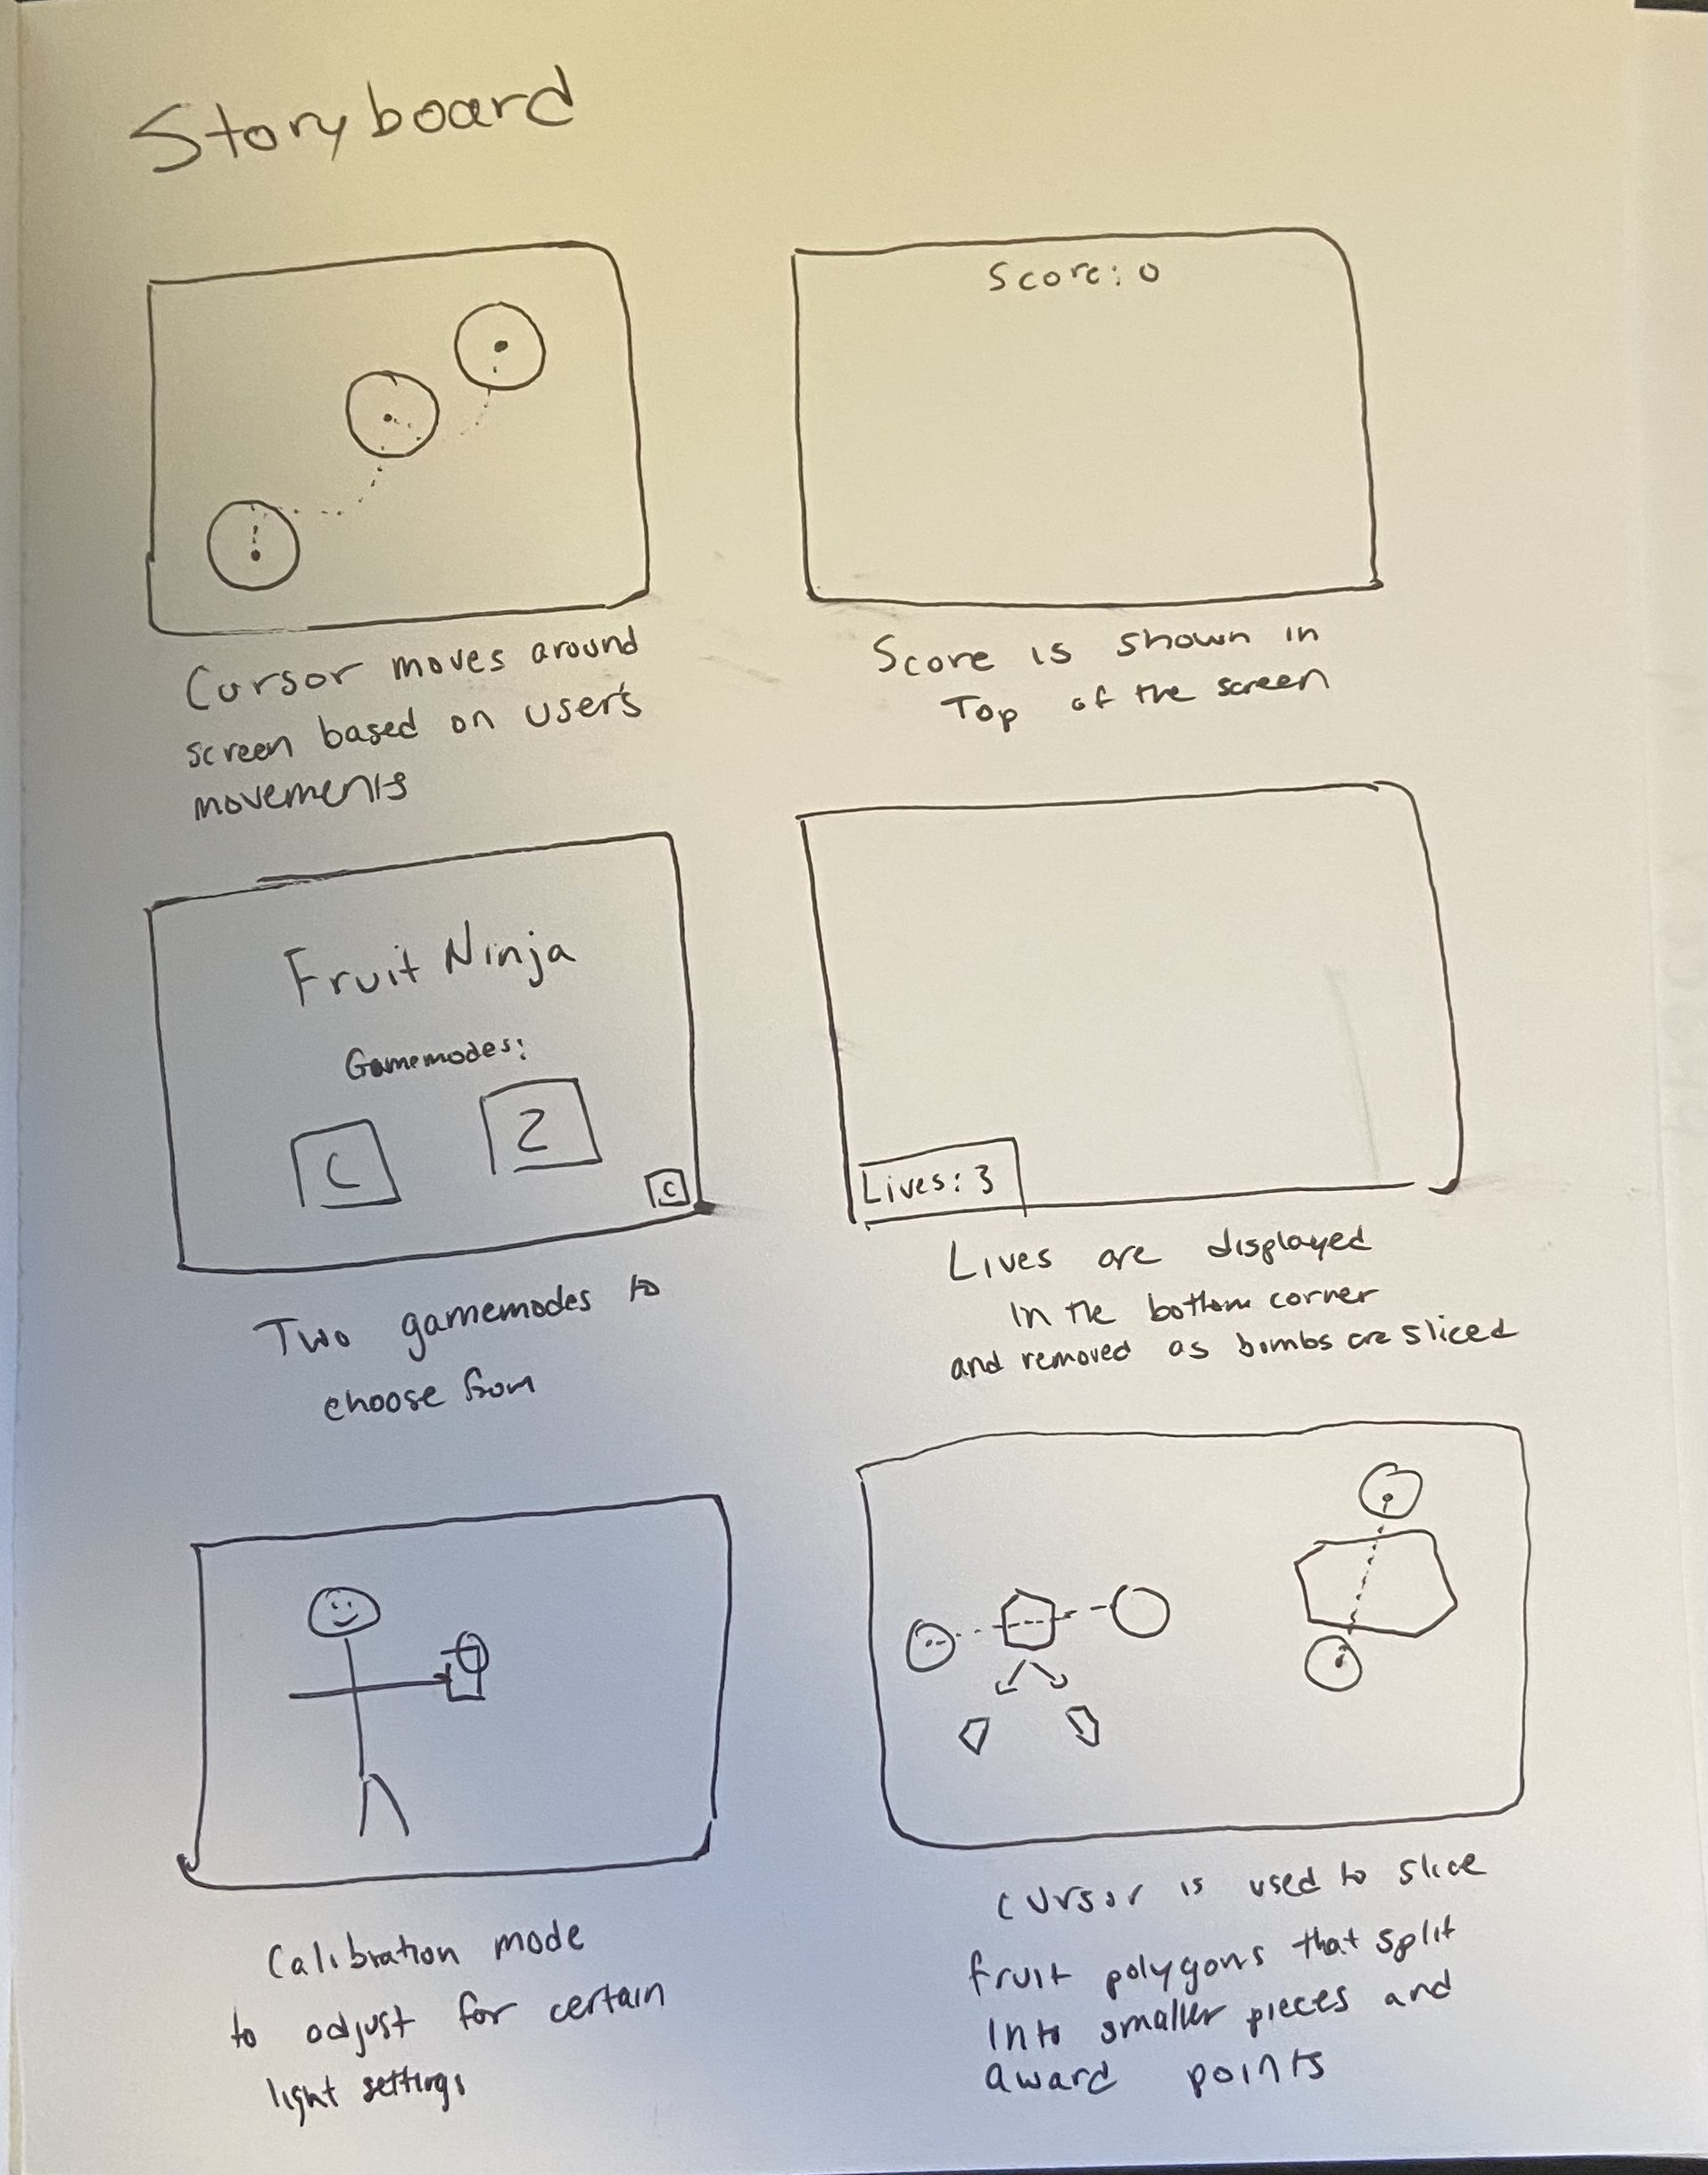 Storyboard
Cursor moves around
screen based on user's
movements
Score: 0
Score is shown in
Top of the screen
Fruit Ninja
Gamemodes:
C
Z
C
Two gamemodes to
choose from
Lives: 3
Lives are displayed
in the bottom corner
and removed as bombs are sliced
Calibration mode
to adjust for certain
light settings
cursor is used to slice
fruit polygons that split
into smaller pieces and
award points